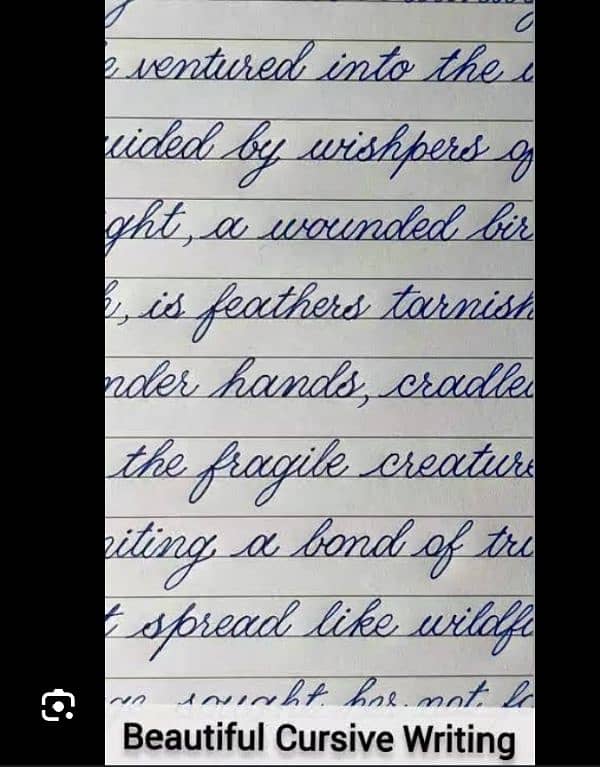 e ventured into the
uided by wishpers of
ght, a wounded bir
h, is feathers tarnish
nder hands, cradle
the fragile creature
niting a bond of tru
t spread like wildfi
sought her not fo
Beautiful Cursive Writing